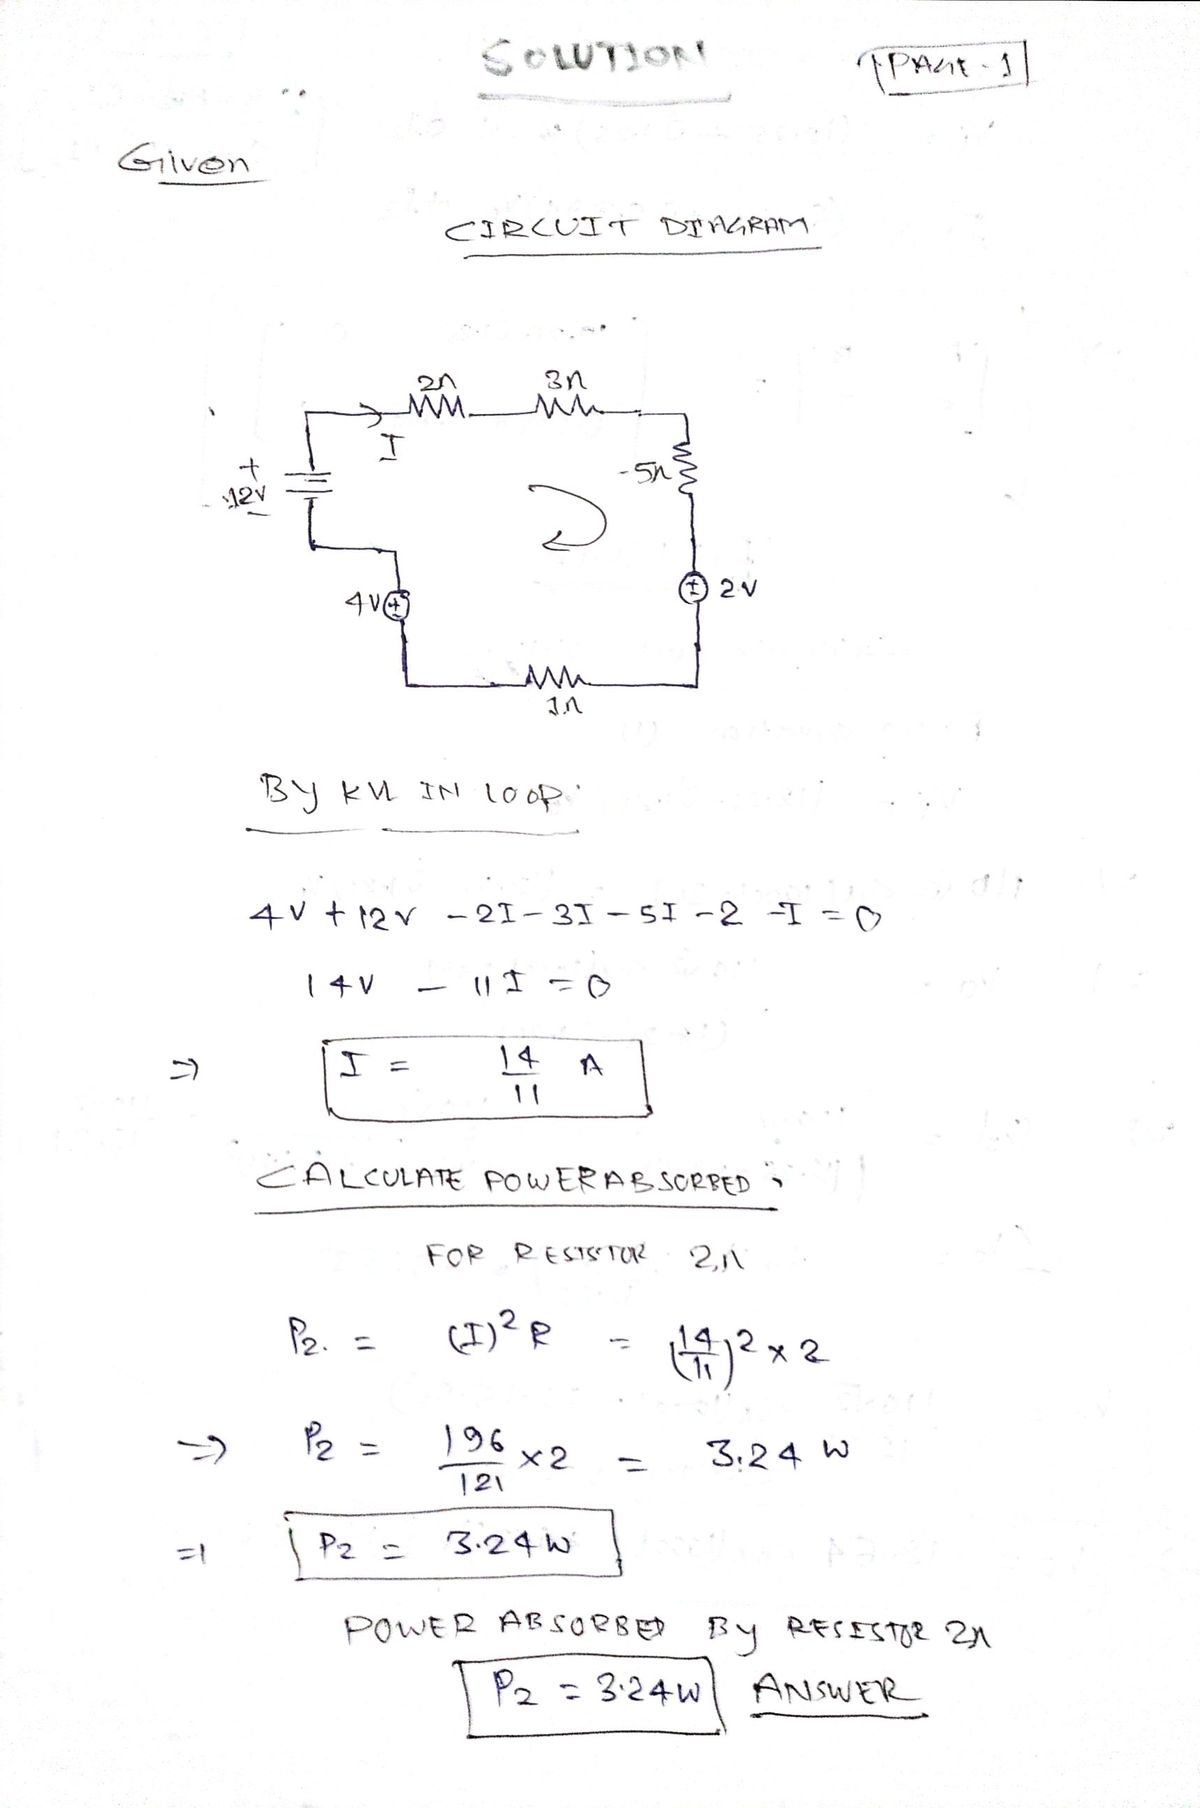 SOLUTION
PAGE-1
Given
CIRCUIT DIAGRAM
2Ω 3Ω
I
+
12V
-
-5Ω
4V ±
± 2V
1Ω
By KVL IN LOOP:
4V + 12V - 2I - 3I - 5I - 2 - I = 0
14V - 11I = 0
⇒ I = 14/11 A
CALCULATE POWER ABSORBED:
FOR RESISTOR 2Ω
P2. = (I)² R = (14/11)² × 2
⇒ P2 = 196/121 × 2 = 3.24 W
⇒ P2 = 3.24 W
POWER ABSORBED By RESISTOR 2Ω
P2 = 3.24W ANSWER